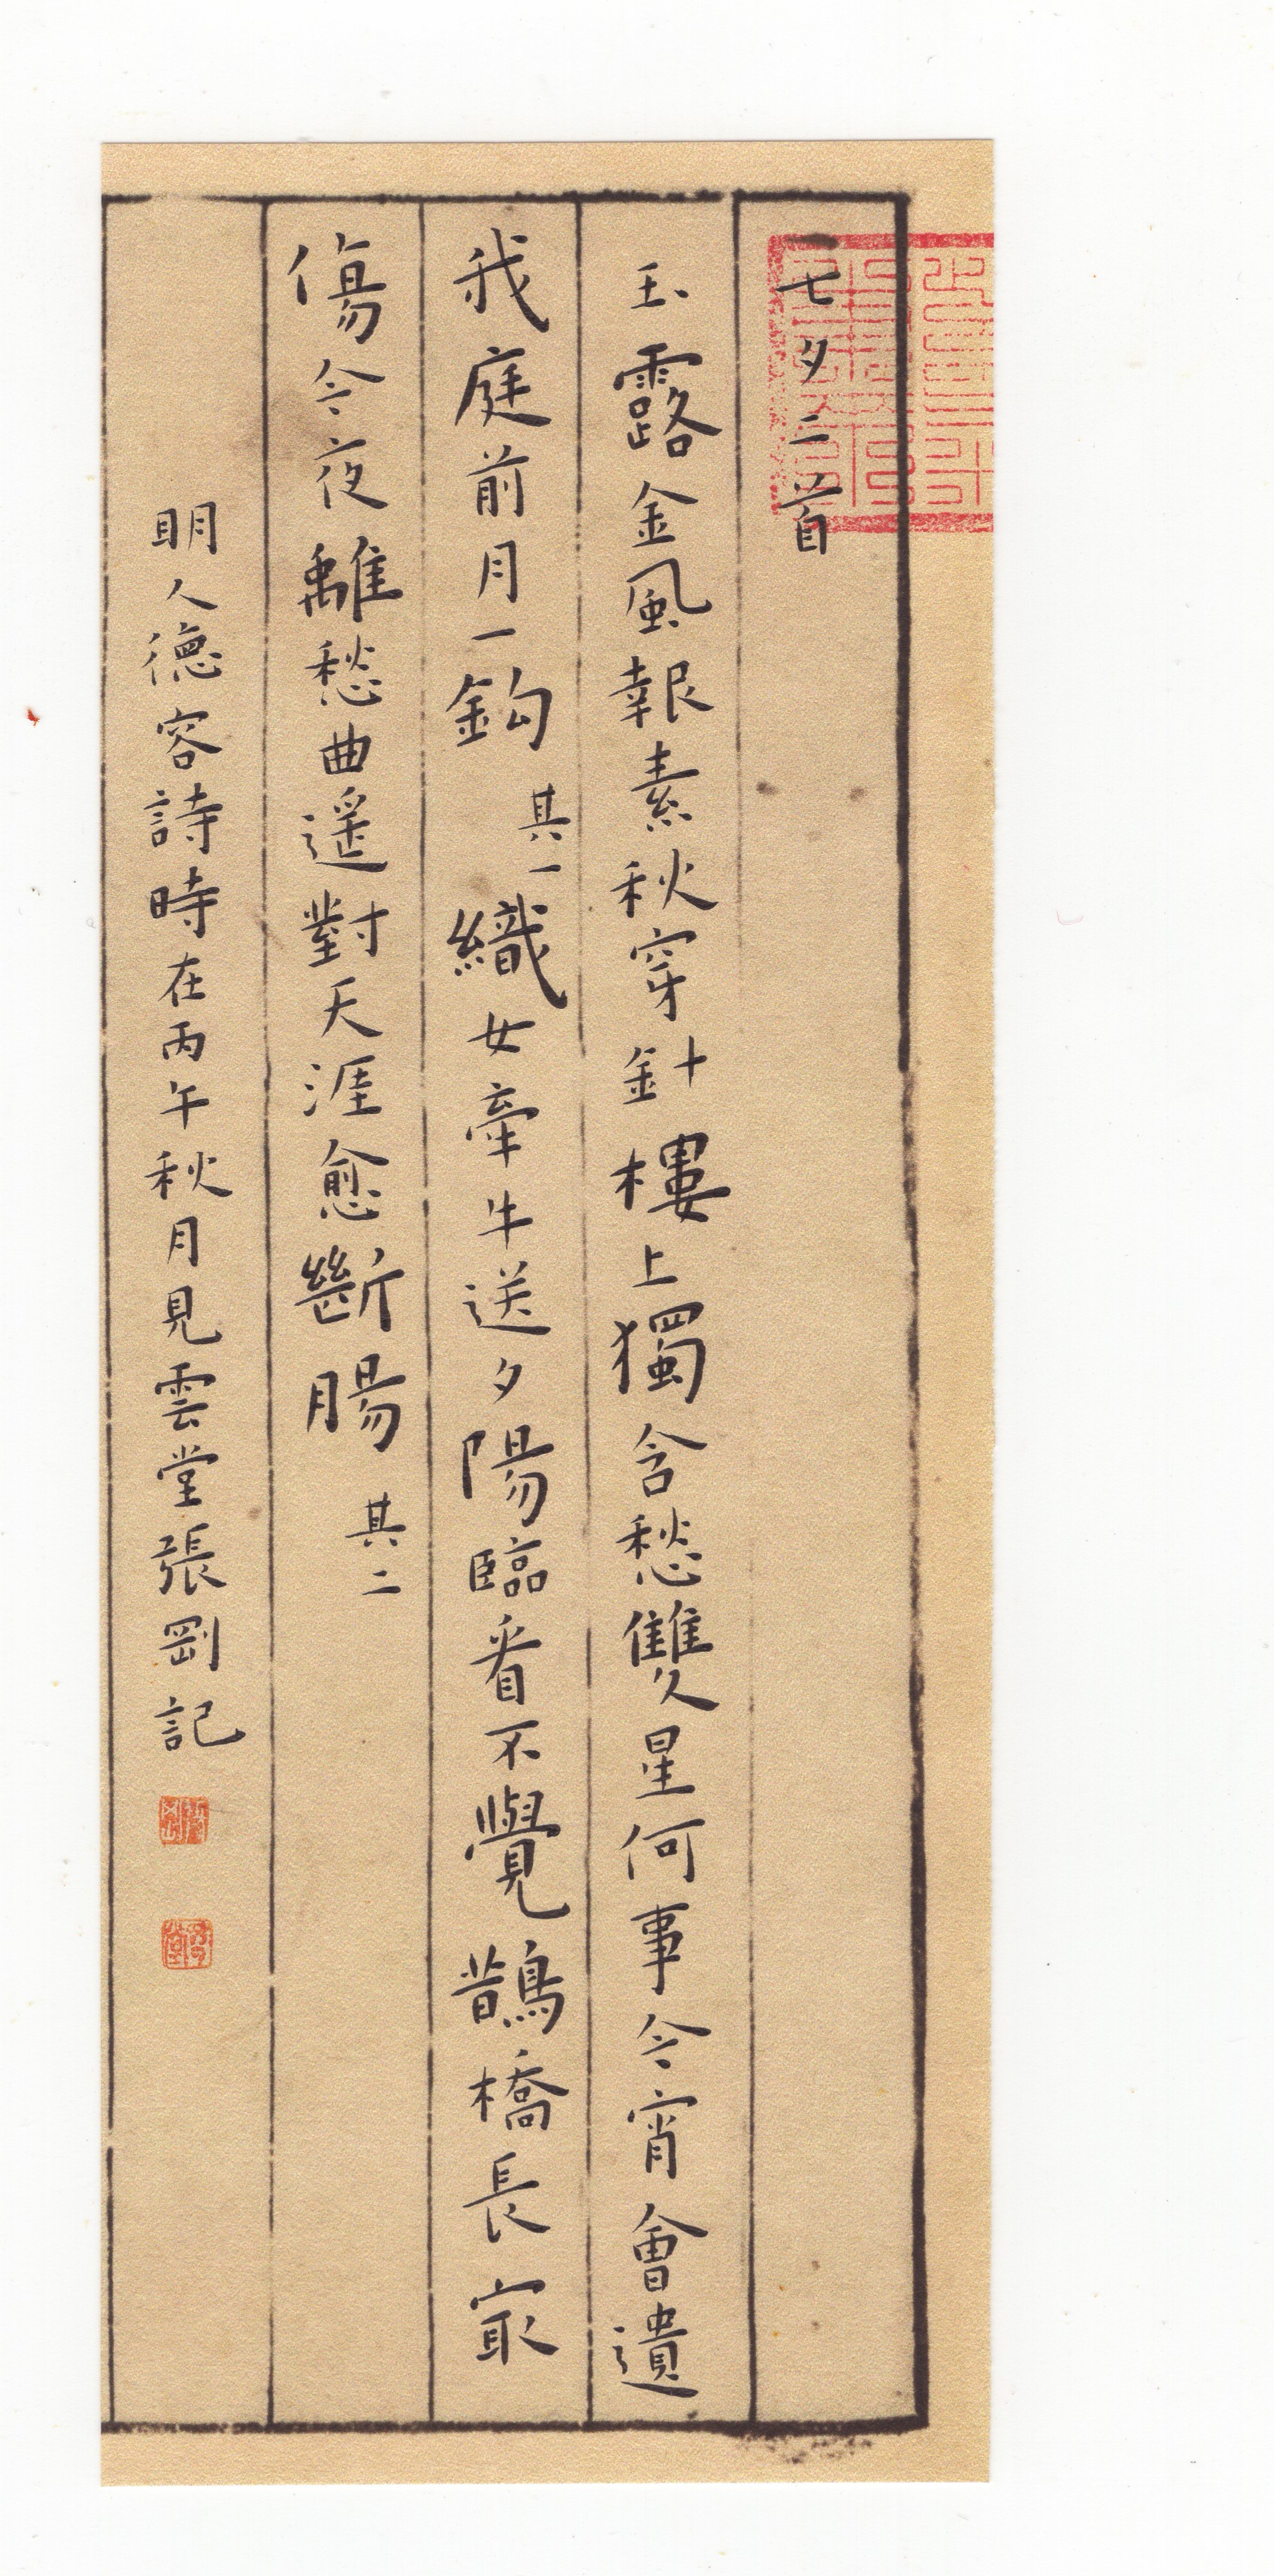 七夕二首
玉露金風報素秋穿針樓上獨含愁雙星何事今宵會遺
我庭前月一鈎其一織女牽牛送夕陽臨看不覺鵲橋長寂
傷今夜離愁曲遥對天涯愈斷腸其二
明人德容詩時在丙午秋月見雲堂張剛記